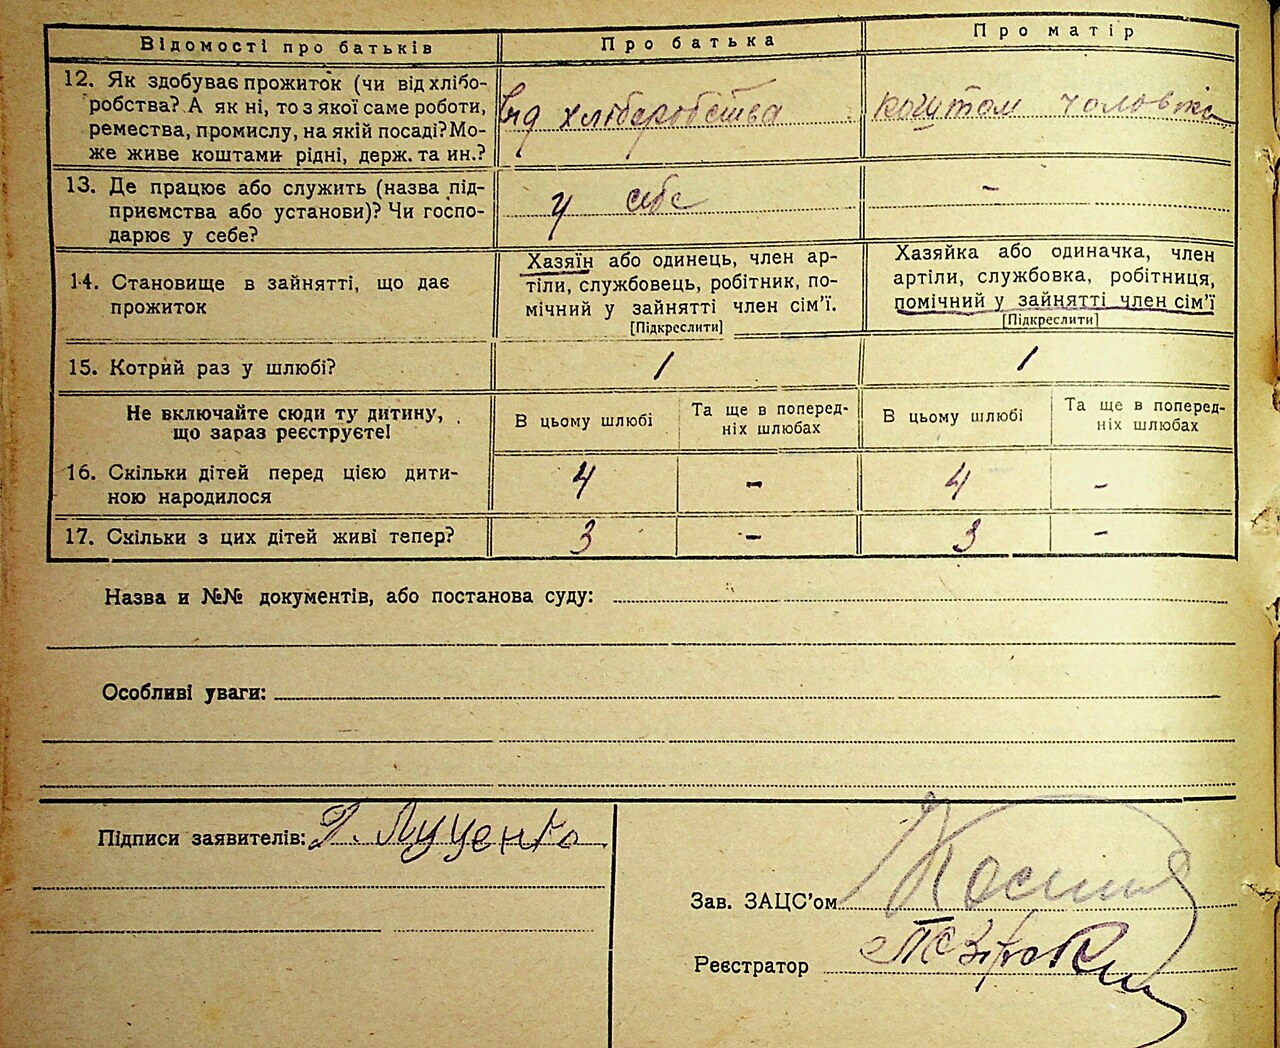 Відомості про батьків
Про батька
Про матір
12. Як здобуває прожиток (чи від хлібо-
робства? А як ні, то з якої саме роботи,
ремества, промислу, на якій посаді? Мо-
же живе коштами рідні, держ. та ин.?
від хліборобства
коштом чоловіка
13. Де працює або служить (назва під-
приємства або установи)? Чи госпо-
дарює у себе?
у себе
-
14. Становище в зайнятті, що дає
прожиток
Хазяїн або одинець, член ар-
тіли, службовець, робітник, по-
мічний у зайнятті член сім’ї.
[Підкреслити]
Хазяйка або одиначка, член
артіли, службовка, робітниця,
помічний у зайнятті член сім’ї
[Підкреслити]
15. Котрий раз у шлюбі?
1
1
Не включайте сюди ту дитину,
що зараз реєструєте!
В цьому шлюбі
Та ще в поперед-
ніх шлюбах
В цьому шлюбі
Та ще в поперед-
ніх шлюбах
16. Скільки дітей перед цією дити-
ною народилося
4
-
4
-
17. Скільки з цих дітей живі тепер?
3
-
3
-
Назва и №№ документів, або постанова суду:
Особливі уваги:
Підписи заявителів: Луценко
Зав. ЗАЦС’ом
Реєстратор